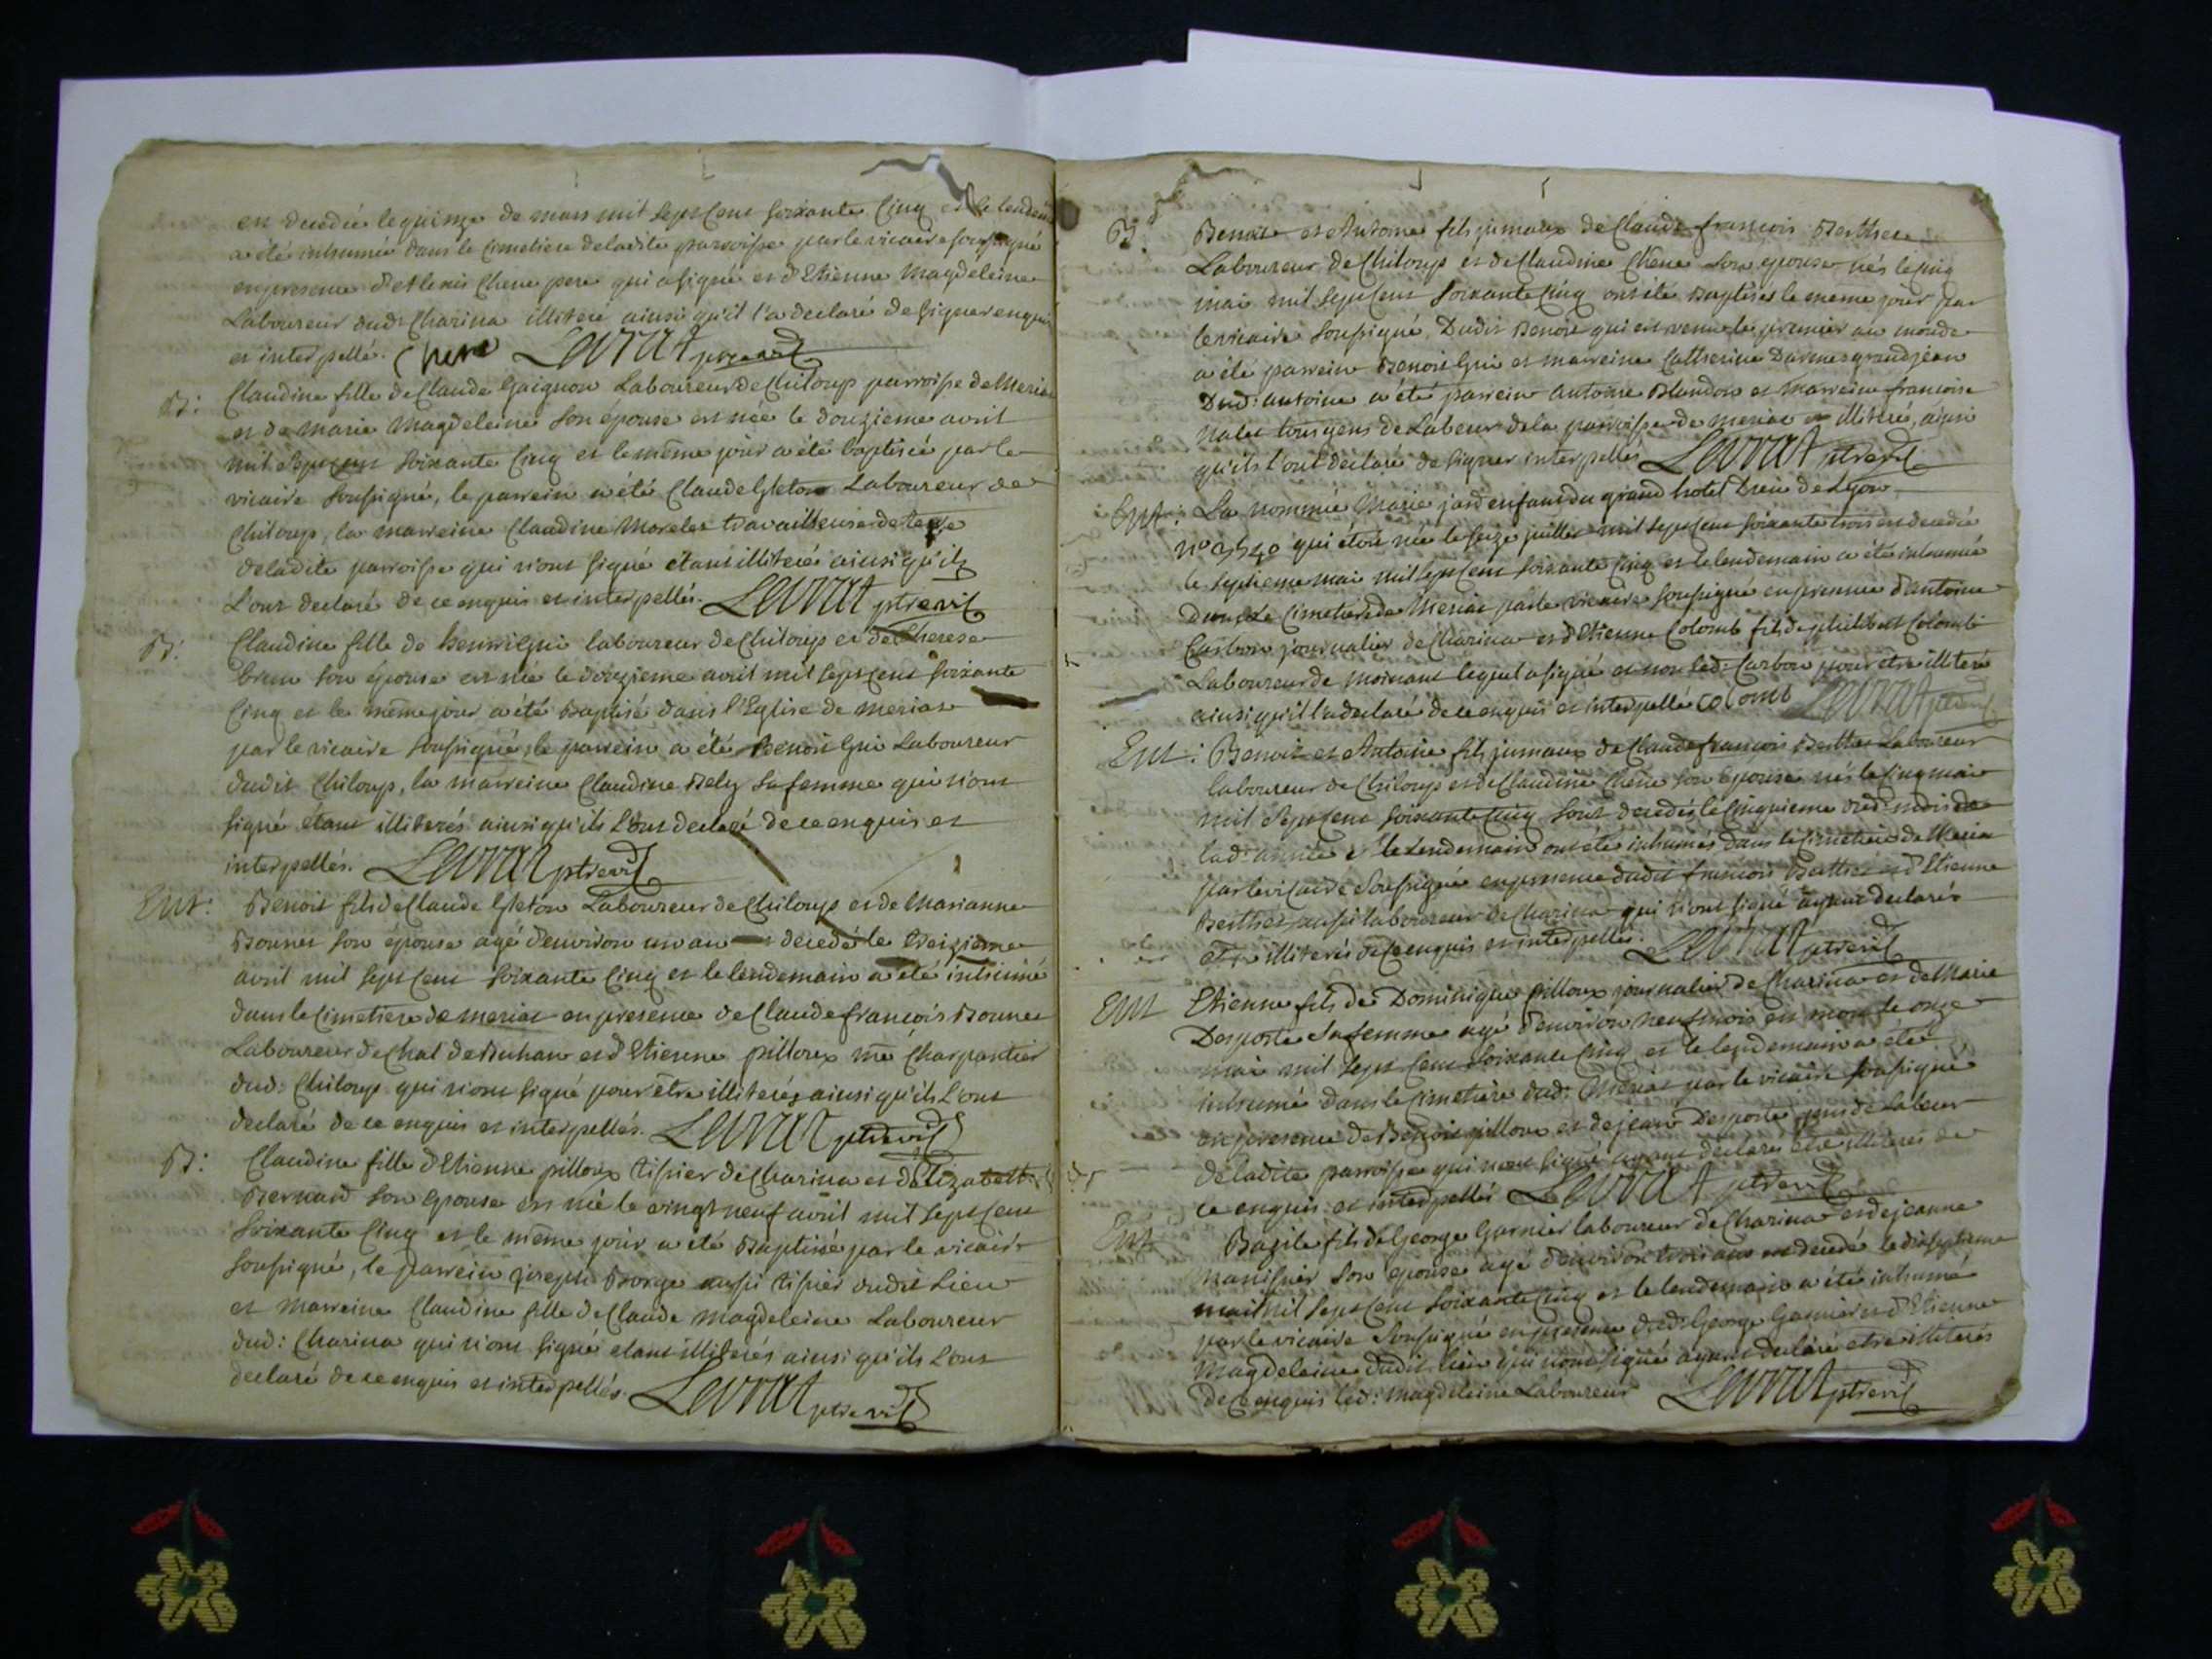 est decedée le quinze de mars mil sept cent soixante cinq et le lendemain
a été inhumée dans le cimetiere de ladite parroisse par le vicaire soussigné
en presence d'Alexis Chene pere qui a signé et d'Etienne Magdeleine
Laboureur dud: Charina illiteré ainsi qu'il l'a declaré de signer enquis
et interpellé. Chene Levrat
B: Claudine fille de Claude Gaignon Laboureur de Chiloup parroisse de Meriat
et de Marie Magdeleine son épouse est née le douzieme avril
mil sept cent soixante cinq et le même jour a été baptisée par le
vicaire soussigné, le parrein a été Claude Gleton Laboureur de
Chiloup, la marreine Claudine Morelet travailleuse de terre
de ladite parroisse qui n'ont signé étant illiterés ainsi qu'ils
l'ont declaré de ce enquis et interpellés. Levrat ptre vic
B: Claudine fille de Henri Gui laboureur de Chiloup et de Therese
brun son épouse est née le douzieme avril mil sept cent soixante
cinq et le même jour a été Baptisé dans l'Eglise de Meriat
par le vicaire soussigné, le parrein a été Benoit Gui Laboureur
dudit Chiloup, la marreine Claudine Bely sa femme qui n'ont
signé étant illiterés ainsi qu'ils l'ont declaré de ce enquis et
interpellés. Levrat ptre vic
Ent: Benoit fils de Claude Gleton Laboureur de Chiloup et de Marianne
Bonnet son épouse agé d'environ un an est decedé le treizieme
avril mil sept cent soixante cinq et le lendemain a été inhumé
dans le cimetiere de meriat en presence de Claude françois Bonnet
Laboureur de Chat de Buhan et d'Etienne pilloux me Charpantier
dud: Chiloup qui n'ont signé pour être illiterés ainsi qu'ils l'ont
declaré de ce enquis et interpellés. Levrat ptre vic
B: Claudine fille d'Etienne pilloux tissier de Charina et d'Elizabeth
Bernard son epouse est née le vingt neuf avril mil sept cent
soixante cinq et le même jour a été Baptisée par le vicaire
soussigné, le parrein joseph Borge aussi tissier dudit Lieu
et marreine Claudine fille de Claude Magdeleine Laboureur
dud: Charina qui n'ont signé etant illiterés ainsi qu'ils l'ont
declaré de ce enquis et interpellés. Levrat ptre vic
B: Benoit et Antoine fils jumaux de Claude françois Berthet
Laboureur de Chiloup et de Claudine Chene son epouse nés le cinq
mai mil sept cent soixante cinq ont été Baptisés le meme jour par
le vicaire soussigné, Dudit Benoit qui est venu le premier au monde
a été parrein Benoit Gui et marreine Catherine Darmes grandjean
Dud: antoine a été parrein antoine Blandon et marreine francoise
tous gens de Labeur de la parroisse de meriat et illiteré, ainsi
qu'ils l'ont declaré de signer interpellés Levrat ptre vic
Ent: La nommée Marie enfant du grand hotel Dieu de Lyon
no qui étoit née le seize juillet mil sept cent soixante trois est decedée
le septieme mai mil sept cent soixante cinq et le lendemain a été inhumée
Dans le cimetiere de Meriat par le vicaire soussigné en presence d'antoine
Carbon journalier de Charina et d'Etienne Colomb fils de philibert Colomb
Laboureur de moinant lequel a signé et non led: Carbon pour etre illiteré
ainsi qu'il l'a declaré de ce enquis et interpellé colomb Levrat ptre vic
Ent: Benoit et Antoine fils jumaux de Claude françois Berthet Laboureur
laboureur de Chiloup et de Claudine Chene son épouse nés le cinq mai
mil sept cent soixante cinq sont decedés le cinquieme dud: mois de
lad: année et le lendemain ont été inhumés dans le cimetiere de Meriat
par le vicaire soussigné en presence dudit francois Berthet et d'Etienne
Berthet aussi laboureur de Charina qui n'ont signé ayant declarés
etre illiterés de ce enquis et interpellés. Levrat ptre vic
Ent Etienne fils de Dominique pilloux journalier de Charina et de Marie
Desporte sa femme agé d'environ neuf mois est mort le onze
mai mil sept cent soixante cinq et le lendemain a été
inhumé dans le cimetiere dud: Meriat par le vicaire soussigné
en presence de Benoit pilloux et de jean Desporte gens de Labeur
de ladite parroisse qui n'ont signé ayant declarés etre illiterés de
ce enquis et interpellés Levrat ptre vic
Ent Bazile fils de George Garnier laboureur de Charina et de jeanne
Manissier son epouse agé d'environ trois ans est decedé le dixseptieme
mai mil sept cent soixante cinq et le lendemain a été inhumé
par le vicaire soussigné en presence dud: George Garnier et d'Etienne
Magdeleine dudit Lieu qui n'ont signé ayant declaré etre illiterés
de ce enquis led: Magdeleine Laboureur Levrat ptre vic